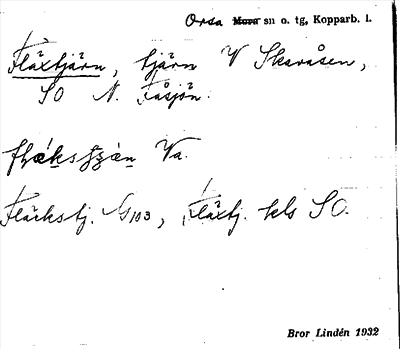 Orsa Mora sn o. tg, Kopparb. l.
Fläxtjärn, tjärn V Skaråsen,
SO N. Fåsjön.
Va.
Fläckstj. G103, Fläxtj. kls SO.
Bror Lindén 1932